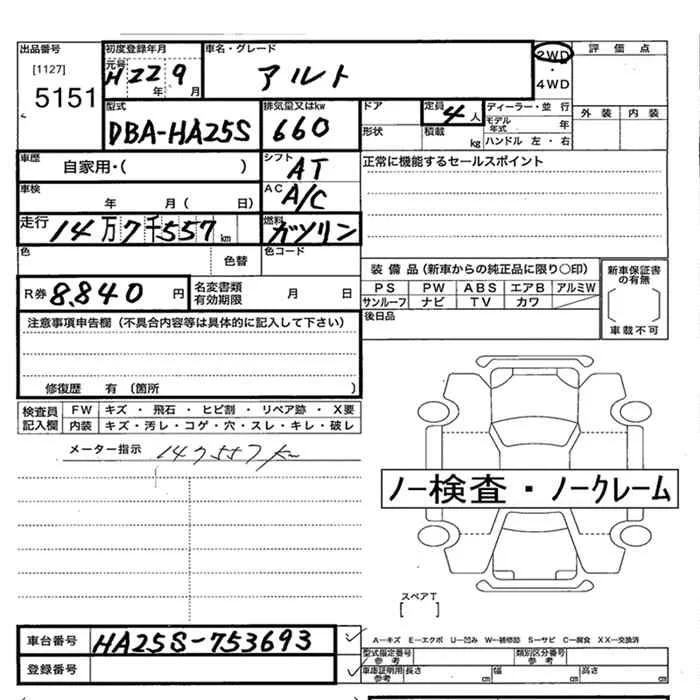 出品番号 初度登録年月 車名・グレード 2WD・4WD 評価点
[1127] 元号 H22年9月 アルト
5151
型式 排気量又はkw ドア 定員 4人 ディーラー・並行 外装 内装
DBA-HA25S 660 形状 積載 kg モデル年式 年
ハンドル 左・右
車歴 自家用・( ) シフト AT 正常に機能するセールスポイント
車検 年 月( 日) AC A/C
走行 14万7千557km 燃料 ガソリン
色 色替 色コード
装備品(新車からの純正品に限り○印) 新車保証書の有無
R券 8,840円 名変書類有効期限 月 日 PS PW ABS エアB アルミW
サンルーフ ナビ TV カワ 車載不可
注意事項申告欄(不具合内容等は具体的に記入して下さい) 後日品
修復歴 有(箇所 )
検査員記入欄 FW キズ・飛石・ヒビ割・リペア跡・X要
内装 キズ・汚レ・コゲ・穴・スレ・キレ・破レ
メーター指示 147557km
ノー検査・ノークレーム
スペアT
[ ]
車台番号 HA25S-753693 A-キズ E-エクボ U-凹み W-補修跡 S-サビ C-腐食 XX-交換済
型式指定番号 参考 類別区分番号 参考
登録番号 車庫証明用 参考 長さ cm 幅 cm 高さ cm